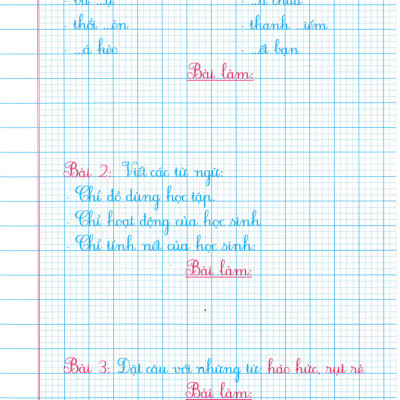 - thổi ...èn - thanh ...iếm
- ...á kéo - ...ết bạn
Bài làm:
Bài 2: Viết các từ ngữ:
- Chỉ đồ dùng học tập.
- Chỉ hoạt động của học sinh
- Chỉ tính nết của học sinh:
Bài làm:
Bài 3: Đặt câu với những từ: háo hức, rụt rè
Bài làm: